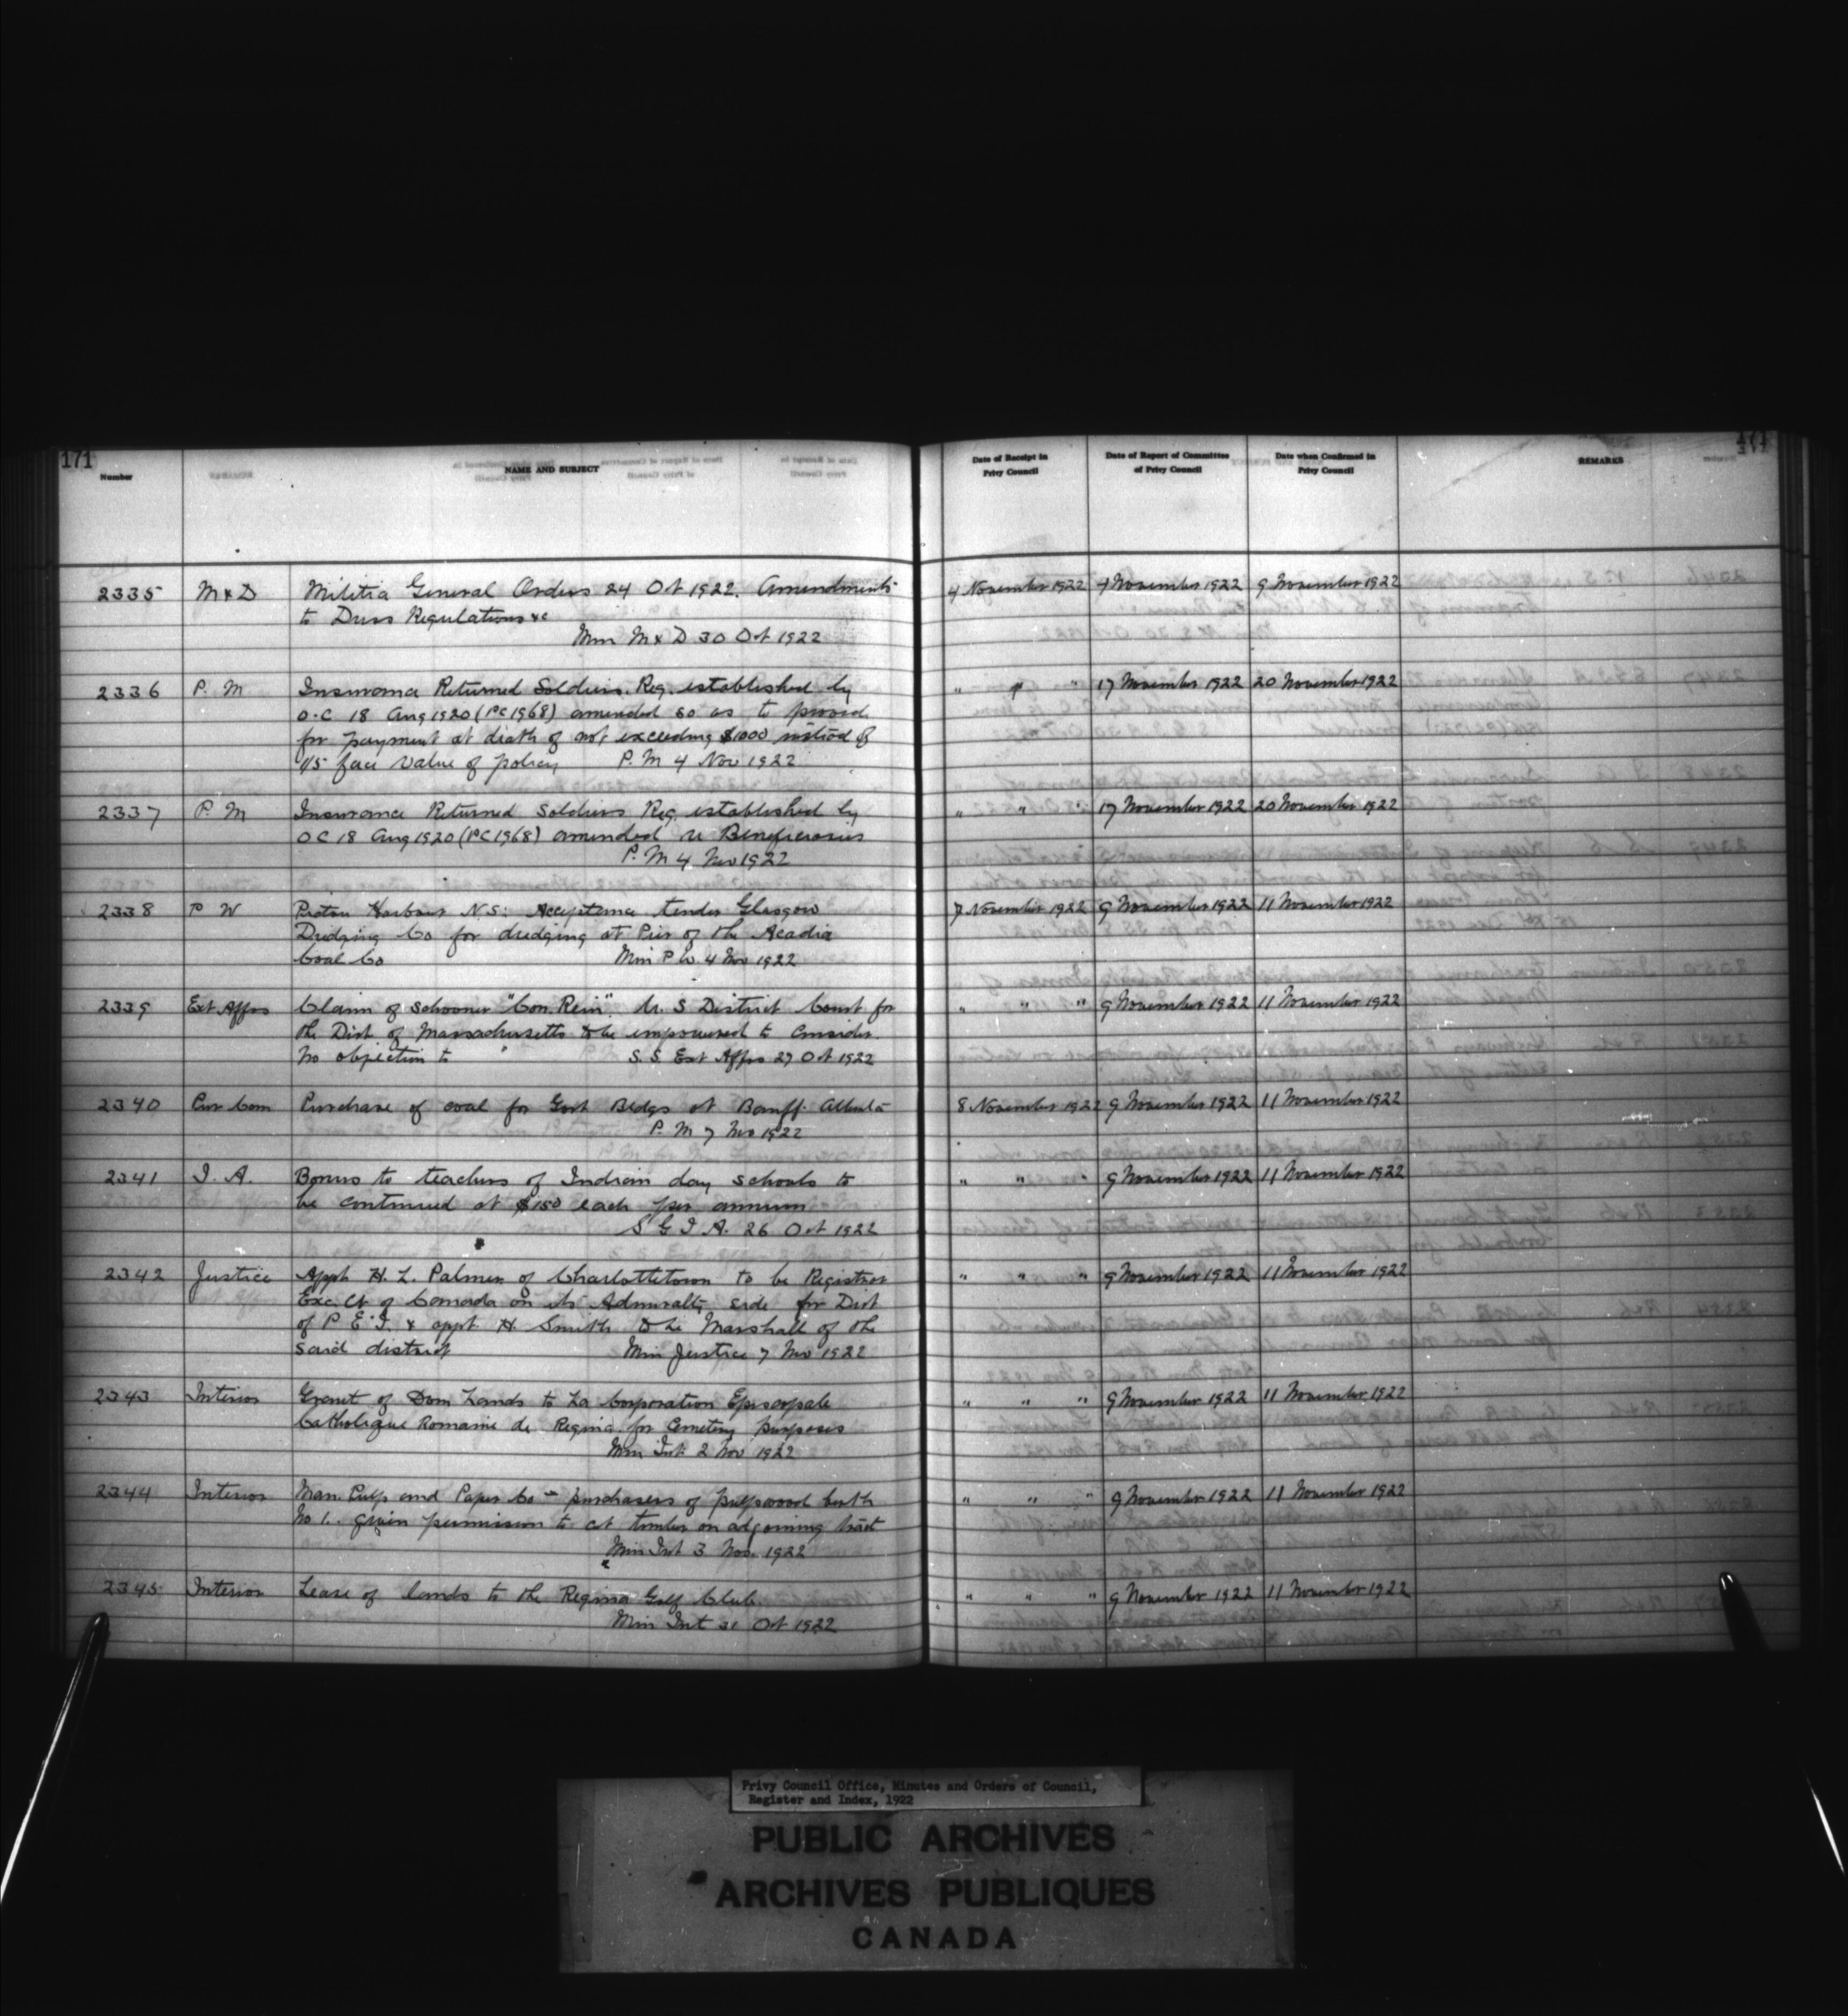 171
171
Number
NAME AND SUBJECT
Date of Receipt in Privy Council
Date of Report of Committee of Privy Council
Date when Confirmed in Privy Council
REMARKS
2335 M & D Militia General Orders 24 Oct 1922. Amendments 4 November 1922 7 November 1922 9 November 1922
to Dress Regulations &c
Min M & D 30 Oct 1922
2336 P. M Insurance Returned Soldiers. Reg. established by " " " 17 November 1922 20 November 1922
O.C 18 Aug 1920 (PC 1968) amended so as to provide
for payment at death of not exceeding $1000 instead of
1/5 face value of policy P. M 4 Nov 1922
2337 P. M Insurance Returned Soldiers Reg. established by " " " 17 November 1922 20 November 1922
OC 18 Aug 1920 (PC 1968) amended re Beneficiaries
P. M 4 Nov 1922
2338 P W Pictou Harbour N.S: Acceptance tender Glasgow 7 November 1922 9 November 1922 11 November 1922
Dredging Co for dredging at Pier of the Acadia
Coal Co Min P W. 4 Nov 1922
2339 Ext Affrs Claim of Schooner "Con. Rein". U. S District Court for " " " 9 November 1922 11 November 1922
the Dist. of Massachusetts to be empowered to consider.
No objection to " S. S. Ext Affrs 27 Oct 1922
2340 Pur Com Purchase of coal for Govt Bldgs at Banff. Alberta 8 November 1922 9 November 1922 11 November 1922
P. M 7 Nov 1922
2341 I. A. Bonus to teachers of Indian day schools to " " " 9 November 1922 11 November 1922
be continued at $150 each per annum
S G I A. 26 Oct 1922
2342 Justice Appt H. L. Palmer of Charlottetown to be Registrar " " " 9 November 1922 11 November 1922
Exc. Ct of Canada on its Admiralty side for Dist
of P. E. I. & appt H. Smith to be Marshall of the
said district Min Justice 7 Nov 1922
2343 Interior Grant of Dom Lands to La Corporation Episcopale " " " 9 November 1922 11 November 1922
Catholique Romaine de Regina for Cemetery purposes
Min Int 2 Nov 1922
2344 Interior Man. Pulp and Paper Co - purchasers of pulpwood berth " " " 9 November 1922 11 November 1922
No 1. given permission to cut timber on adjoining tract
Min Int 3 Nov. 1922
2345 Interior Lease of lands to the Regina Golf Club. " " " 9 November 1922 11 November 1922
Min Int 31 Oct 1922
Privy Council Office, Minutes and Orders of Council,
Register and Index, 1922
PUBLIC ARCHIVES
ARCHIVES PUBLIQUES
CANADA